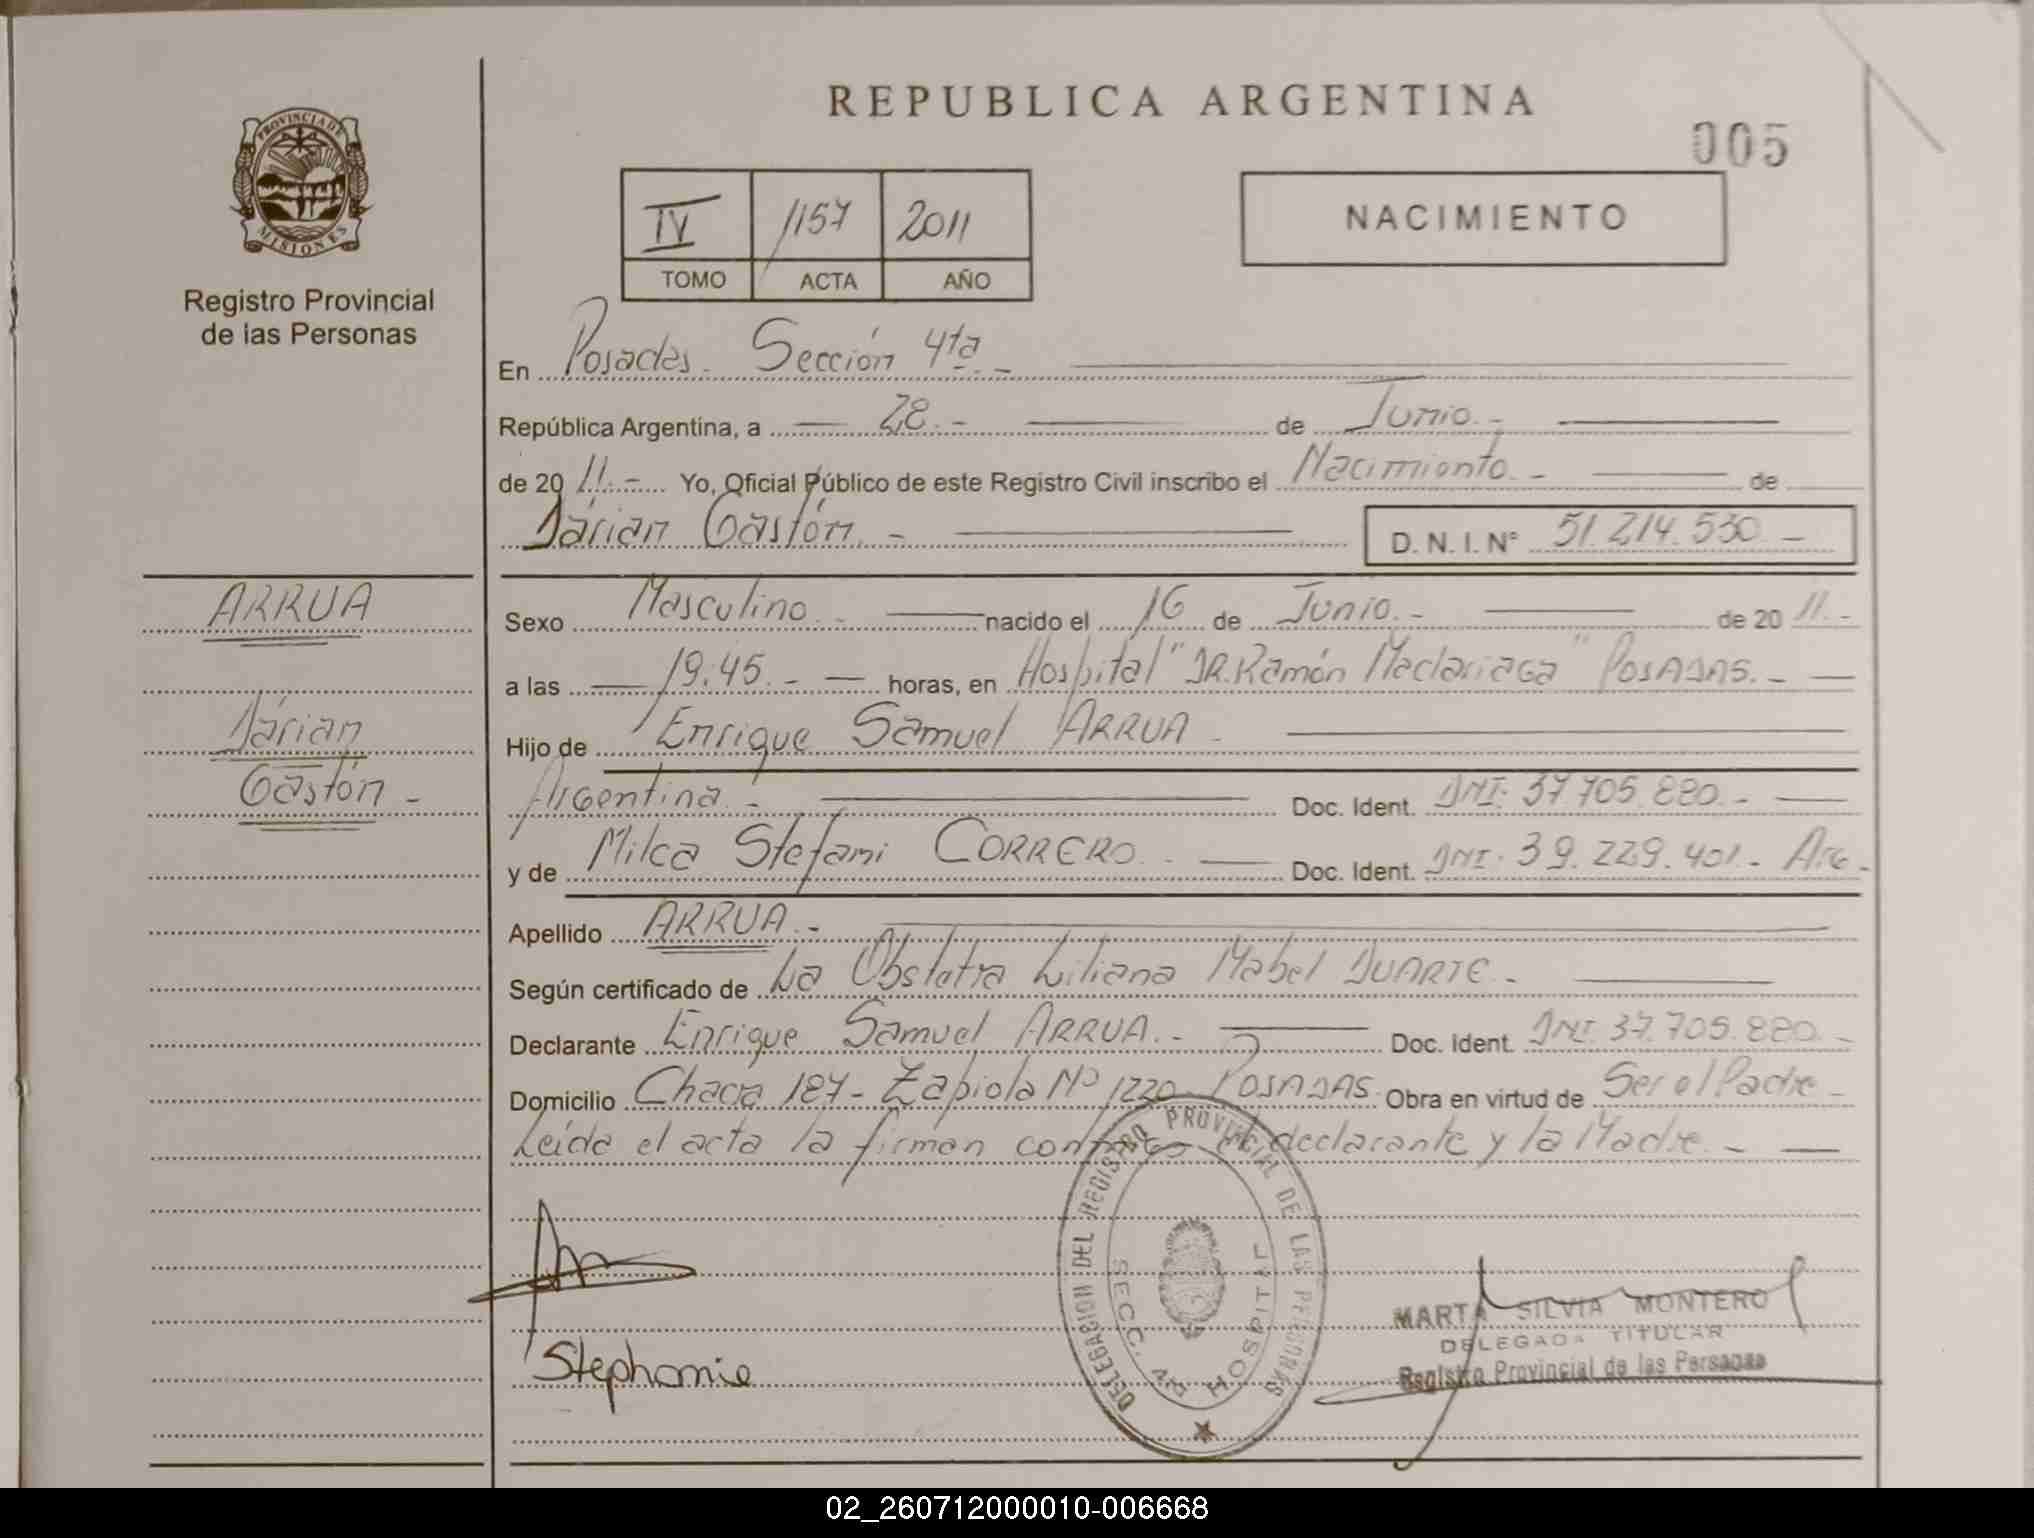 REPUBLICA ARGENTINA
005
PROVINCIA DE
MISIONES
Registro Provincial
de las Personas
IV 1157 2011
TOMO ACTA AÑO
NACIMIENTO
En Posadas. Sección 4ta.-
República Argentina, a 28.- de Junio.-
de 2011.- Yo, Oficial Público de este Registro Civil inscribo el Nacimiento.- de
Dárian Gastón.- D. N. I. N° 51.214.530.-
ARRUA
Dárian
Gastón.-
Sexo Masculino.- nacido el 16 de Junio.- de 2011.-
a las 19:45.- horas, en Hospital "DR. Ramón Madariaga" POSADAS.-
Hijo de Enrique Samuel ARRUA.
Argentina.- Doc. Ident. DNI. 37.705.880.-
y de Milca Stefani CORRERO. Doc. Ident. DNI. 39.229.401.- Arg.-
Apellido ARRUA.-
Según certificado de La Obstetra Liliana Mabel DUARTE.-
Declarante Enrique Samuel ARRUA.- Doc. Ident. DNI. 37.705.880.-
Domicilio Chacra 187- Zapiola Nº 1220- POSADAS. Obra en virtud de Ser el Padre.-
Leída el acta la firman conmigo el declarante y la Madre.-
DELEGACION DEL REGISTRO PROVINCIAL DE LAS PERSONAS
SECC. 4ta HOSPITAL
Stephanie
MARTA SILVIA MONTERO
DELEGADA TITULAR
Registro Provincial de las Personas
02_260712000010-006668